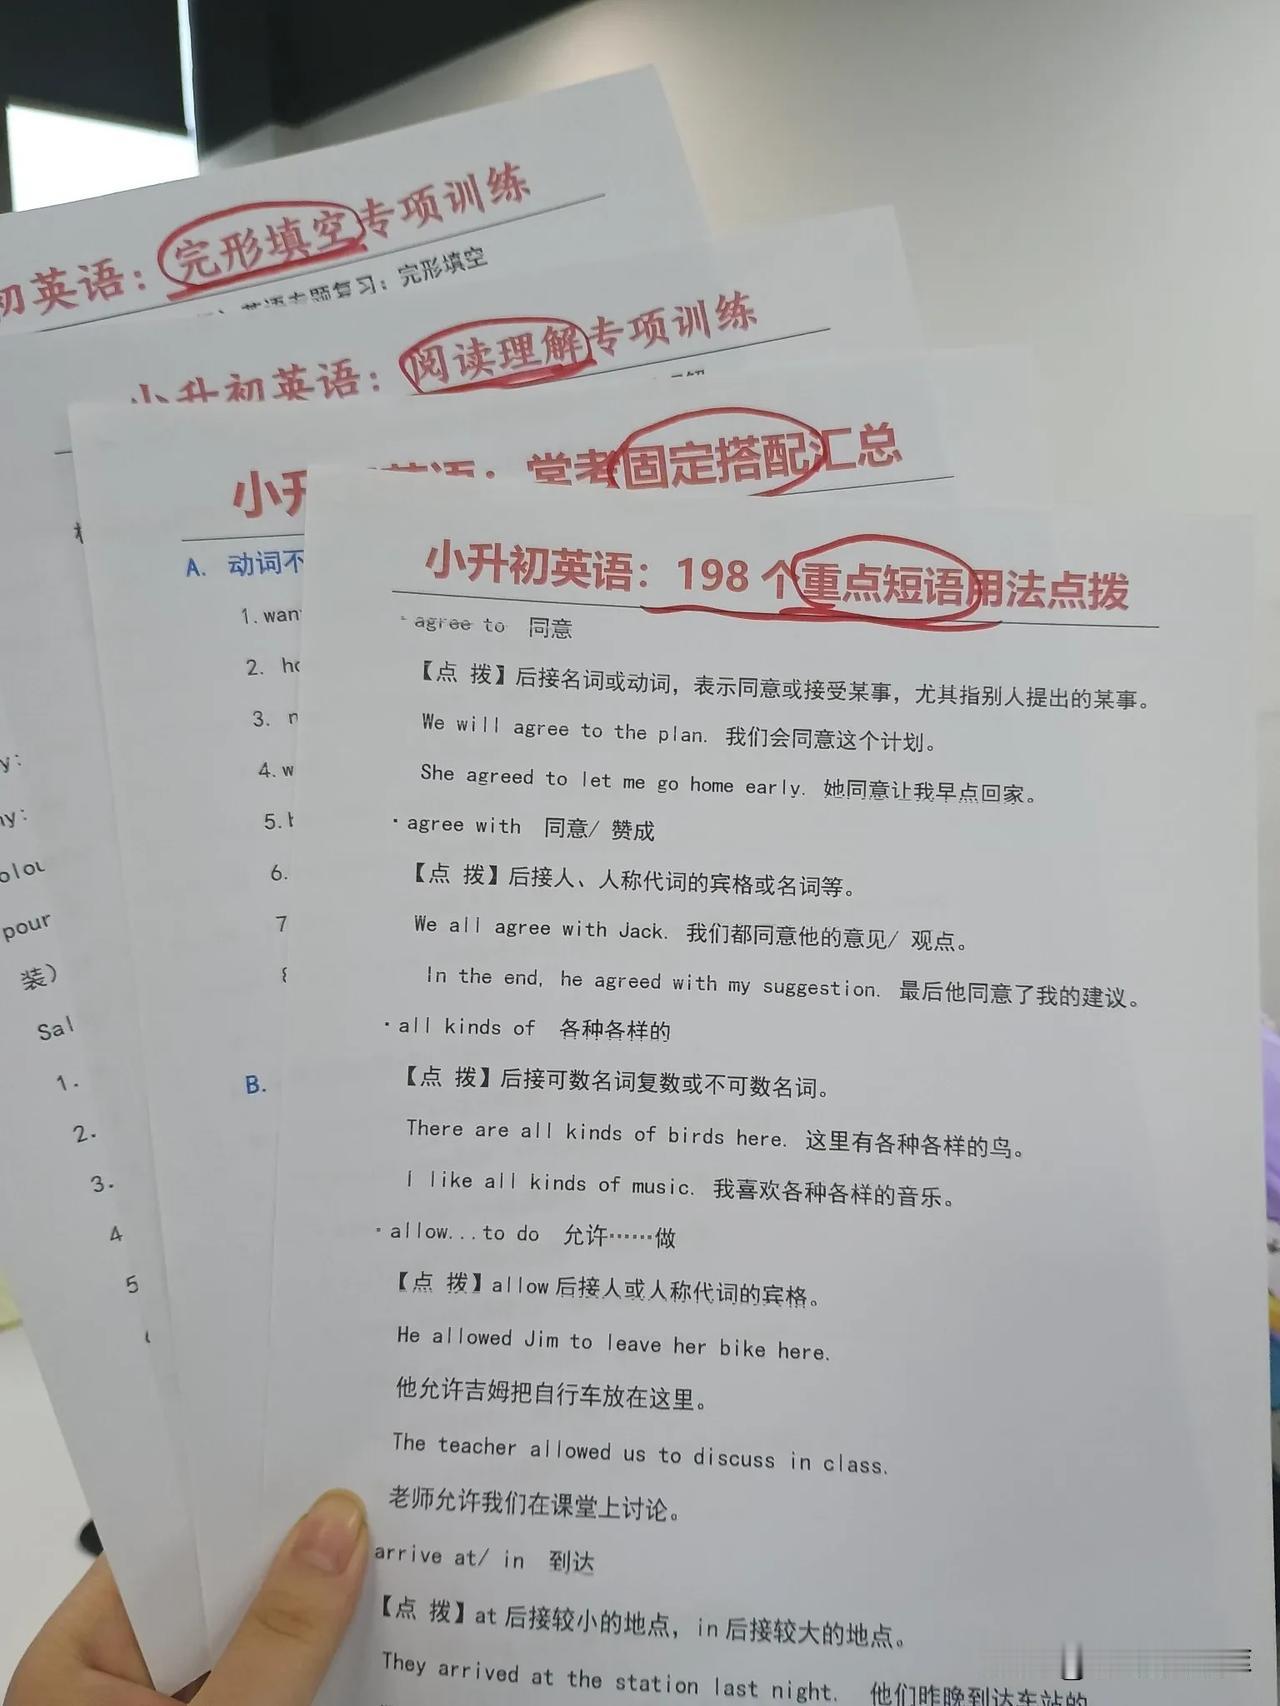 初英语：完形填空专项训练
英语专题复习：完形填空
小升初英语：阅读理解专项训练
小升 英语：常考固定搭配汇总
A. 动词不
1. wan
2. ho
3.
4. w
5.
6.
7
8
B.
y:
ny:
olou
pour
装）
Sal
1.
2.
3.
4
5
小升初英语：198个重点短语用法点拨
· agree to 同意
【点 拨】后接名词或动词，表示同意或接受某事，尤其指别人提出的某事。
We will agree to the plan. 我们会同意这个计划。
She agreed to let me go home early. 她同意让我早点回家。
· agree with 同意/ 赞成
【点 拨】后接人、人称代词的宾格或名词等。
We all agree with Jack. 我们都同意他的意见/ 观点。
In the end, he agreed with my suggestion. 最后他同意了我的建议。
· all kinds of 各种各样的
【点 拨】后接可数名词复数或不可数名词。
There are all kinds of birds here. 这里有各种各样的鸟。
I like all kinds of music. 我喜欢各种各样的音乐。
· allow...to do 允许……做
【点 拨】allow后接人或人称代词的宾格。
He allowed Jim to leave her bike here.
他允许吉姆把自行车放在这里。
The teacher allowed us to discuss in class.
老师允许我们在课堂上讨论。
arrive at/ in 到达
【点 拨】at后接较小的地点，in后接较大的地点。
They arrived at the station last night. 他们昨晚到达车站的